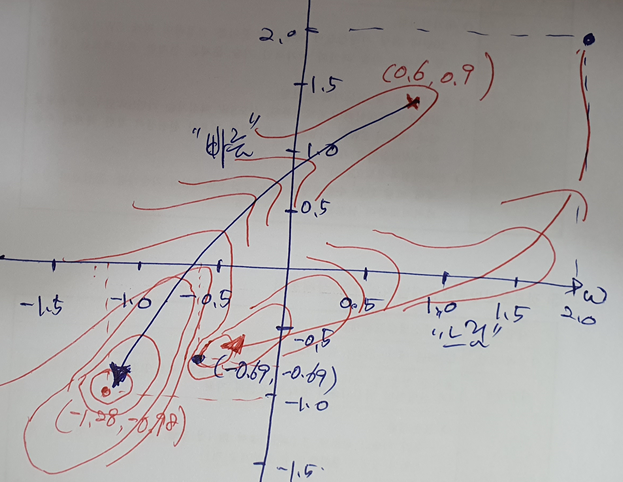 2.0
1.5
(0.6, 0.9)
1.0
0.5
-1.5
-1.0
-0.5
0.5
1.0
1.5
2.0
ω
-0.5
(-0.69, -0.69)
-1.0
(-1.28, -0.98)
-1.5